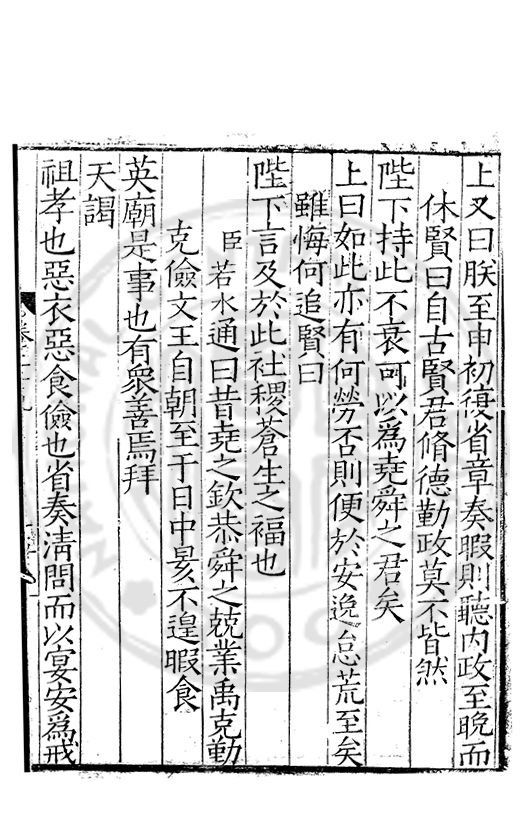 上又曰朕至申初復省章奏暇則聽內政至晚而
休賢曰自古賢君脩德勤政莫不皆然
陛下持此不衰可以為堯舜之君矣
上曰如此亦有何勞否則便於安逸怠荒至矣
雖悔何追賢曰
陛下言及於此社稷蒼生之福也
臣若水通曰昔堯之欽恭舜之兢業禹克勤
克儉文王自朝至于日中昃不遑暇食
英廟是事也有衆善焉拜
天謁
祖孝也惡衣惡食儉也省奏清問而以宴安為戒